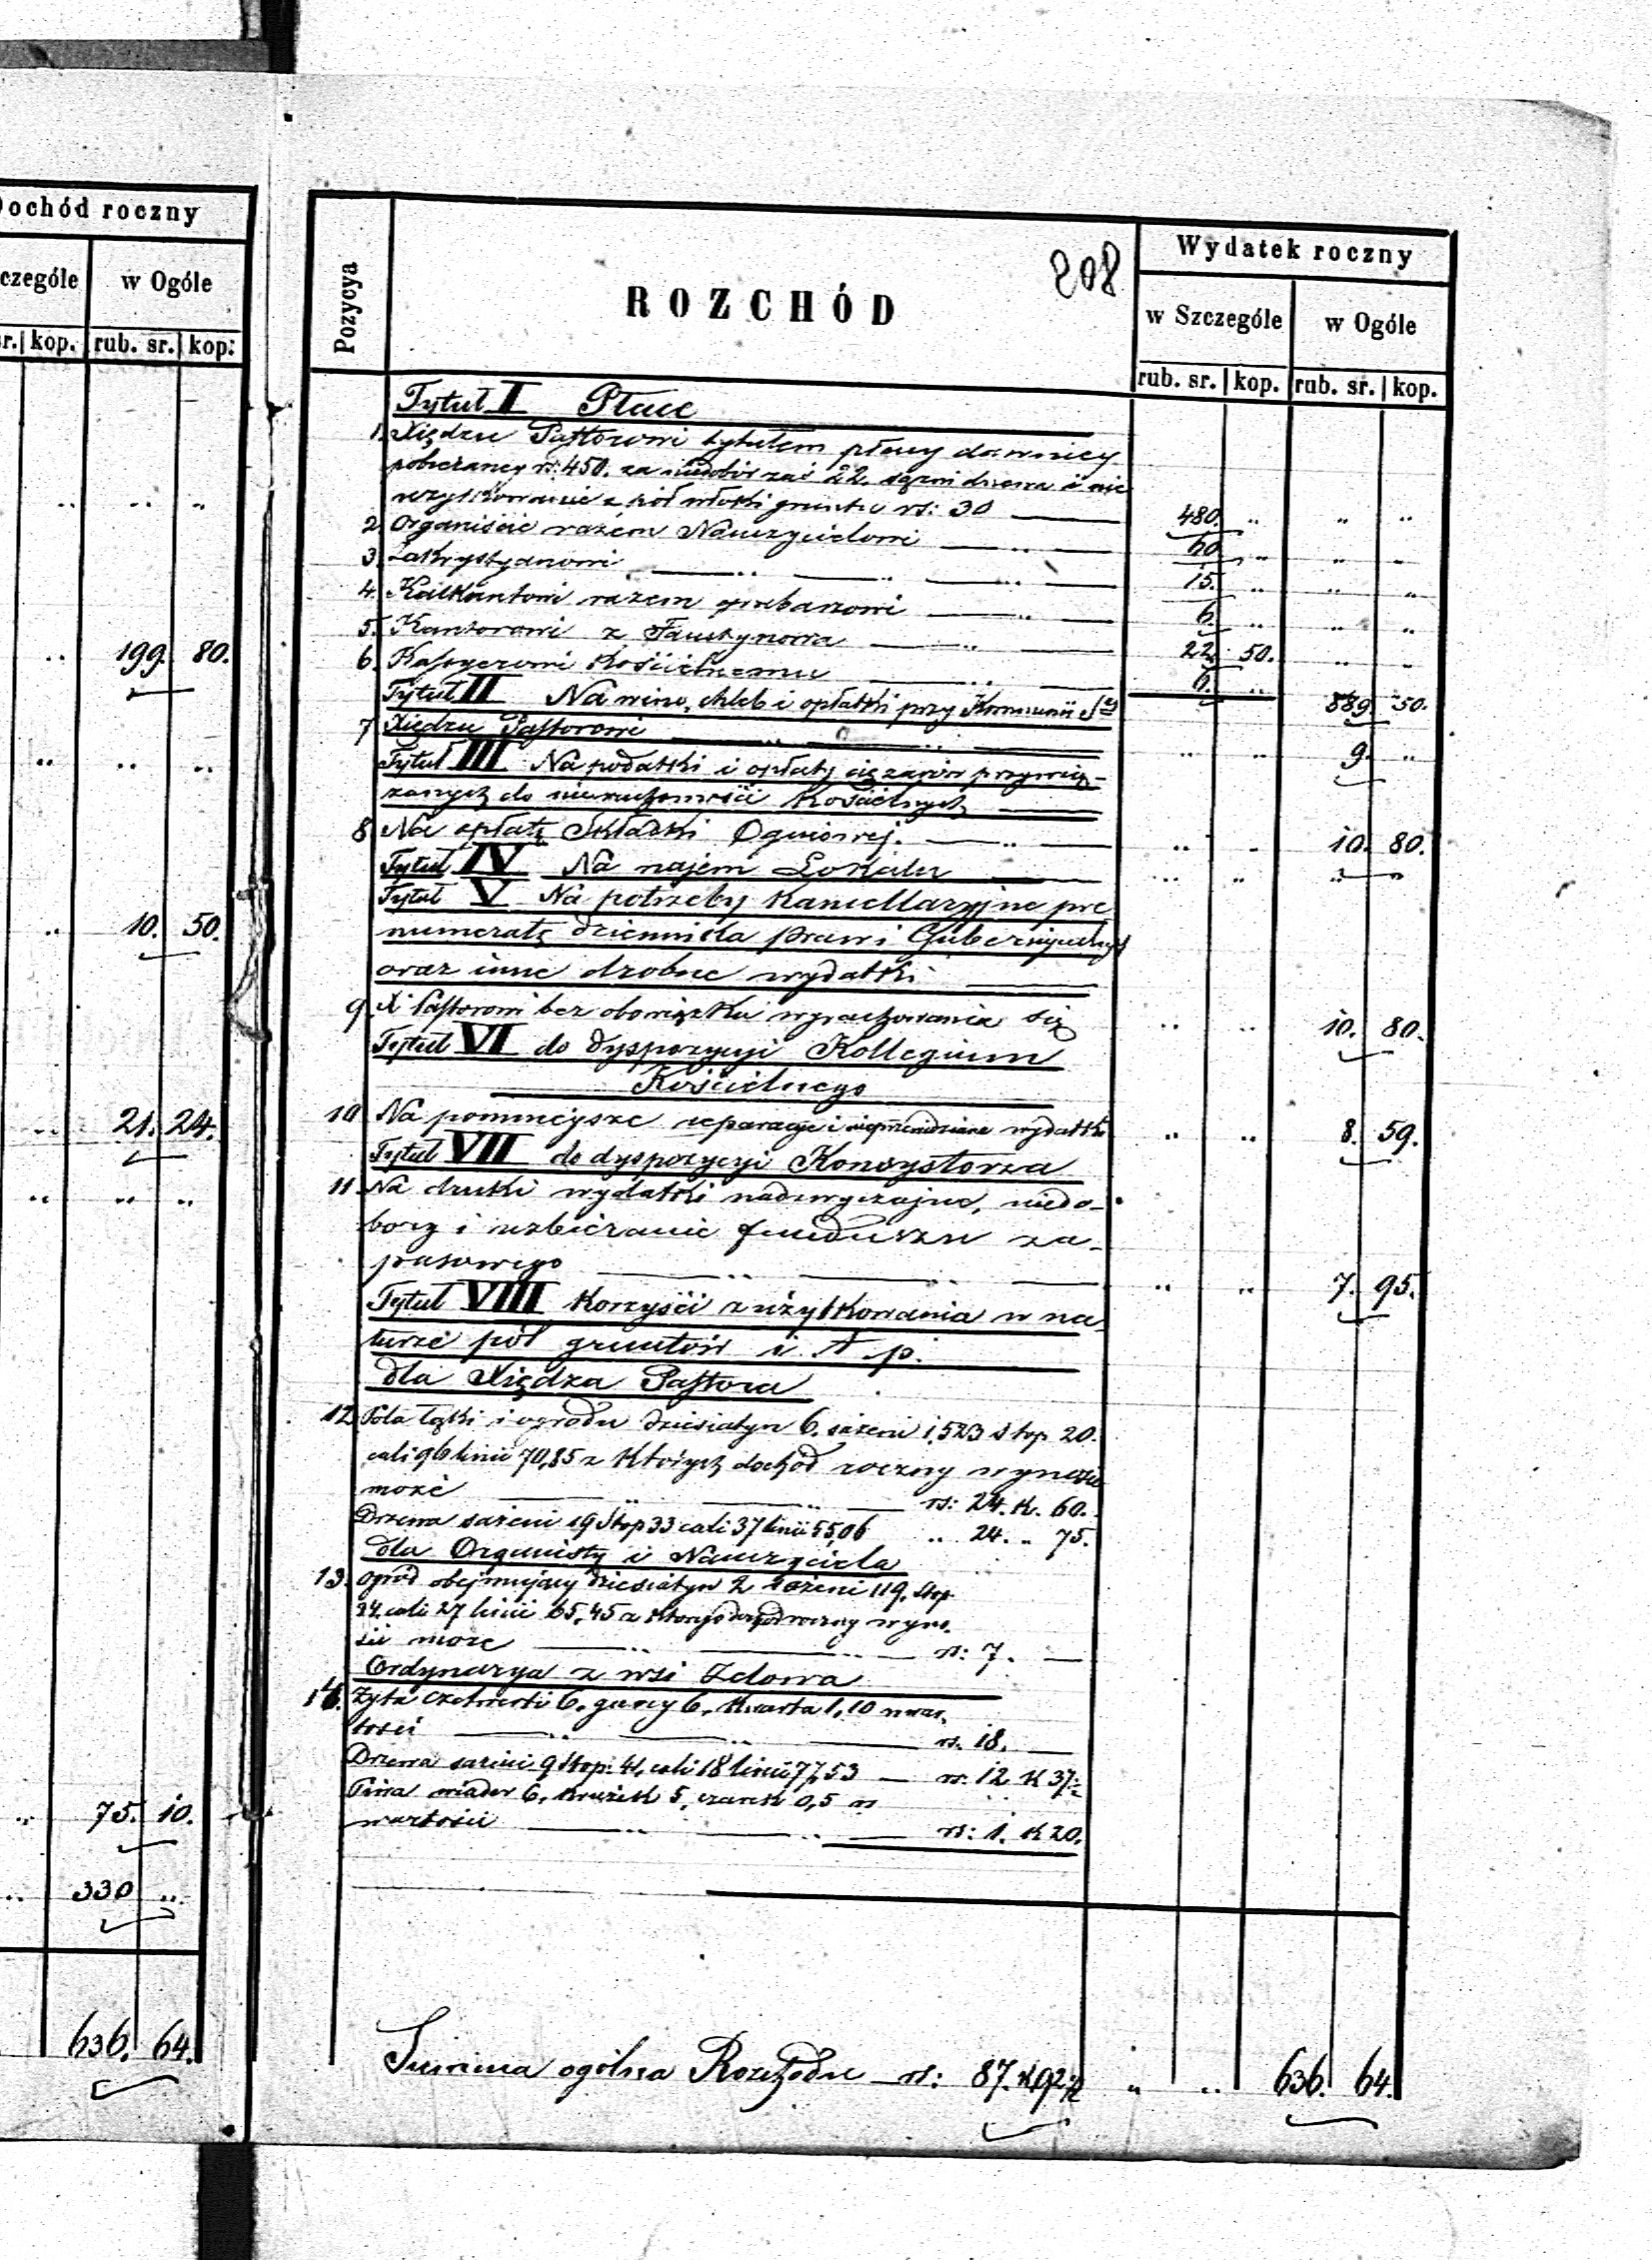 Dochód roczny
czególe w Ogóle
sr. kop. rub. sr. kop:
199. 80.
10. 50.
21. 24.
75. 10.
330 ..
636. 64.
208
Pozycya
ROZCHÓD
Wydatek roczny
w Szczególe w Ogóle
rub. sr. kop. rub. sr. kop.
Tytuł I Płace
1. Xiędzu Pastorowi tytułem płacy dawniej
pobieranej rs: 450. za niedobór zaś 22. sążni drzewa i nie
użytkowanie z pół włóki gruntu rs: 30 480. .. .. ..
2. Organiście razem Nauczycielowi 60 .. .. ..
3. Zakrystyanowi 15. .. .. ..
4. Kalkantowi razem grabarzowi 6. .. .. ..
5. Kantorowi z Faustynowa 22. 50. .. ..
6. Kassyerowi Kościelnemu 6. ..
Tytuł II Na wino, chleb i opłatki przy Kommunii Stej 589 50.
7 Xiędzu Pastorowi .. .. 9. ..
Tytuł III Na podatki i opłaty ciężarów przywią-
zanych do nieruchomości Kościelnych
8. Na opłatę Składki Ogniowej. .. .. 10. 80.
Tytuł IV Na najem Lokalu .. .. .. ..
Tytuł V Na potrzeby Kancellaryjne pre
numeratę dziennika praw i Gubernijalnych
oraz inne drobne wydatki
9 X Pastorowi bez obowiązku wyrachowania się .. .. 10. 80.
Tytuł VI do dyspozycyi Kollegium
Kościelnego
10 Na pomniejsze reparacje i nieprzewidziane wydatki .. .. 8. 59.
Tytuł VII do dyspozycyi Konsystorza
11. Na druki wydatki nadzwyczajne, niedo-
bory i uzbieranie funduszu za-
pasowego .. .. 7. 95.
Tytuł VIII Korzyści z użytkowania w na-
turze pól gruntów i t. p.
dla Xiędza Pastora
12 Pola łąki i ogrodu dziesiatyn 6. sażeni 1,523 stop 20.
cali 96 linii 70,85 z których dochód roczny wynosić
może rs: 24. k. 60.
Drzewa sażeni 19 Stop 33 cali 37 linii 55,06 .. 24. .. 75.
dla Organisty i Nauczyciela
13. Ogród obejmujący dziesiatyn 2 sażeni 119. stop
24. cali 27 linii 65,45 z którego dochód roczny wyno-
sić może rs: 7. —
Ordynarya z wsi Zelowa
14. Żyta czetwerti 6. garncy 6. kwarta 1,10 war-
tości rs. 18. —
Drzewa sażeni 9 Stop: 41, cali 18 linii 77,53 — rs. 12 K 37½
Piwa wiader 6, krużek 5, czarek 0,5 w
wartości rs: 1. K 20.
Summa ogólna Rozchodu rs: 87. k 92½ .. .. 636. 64.